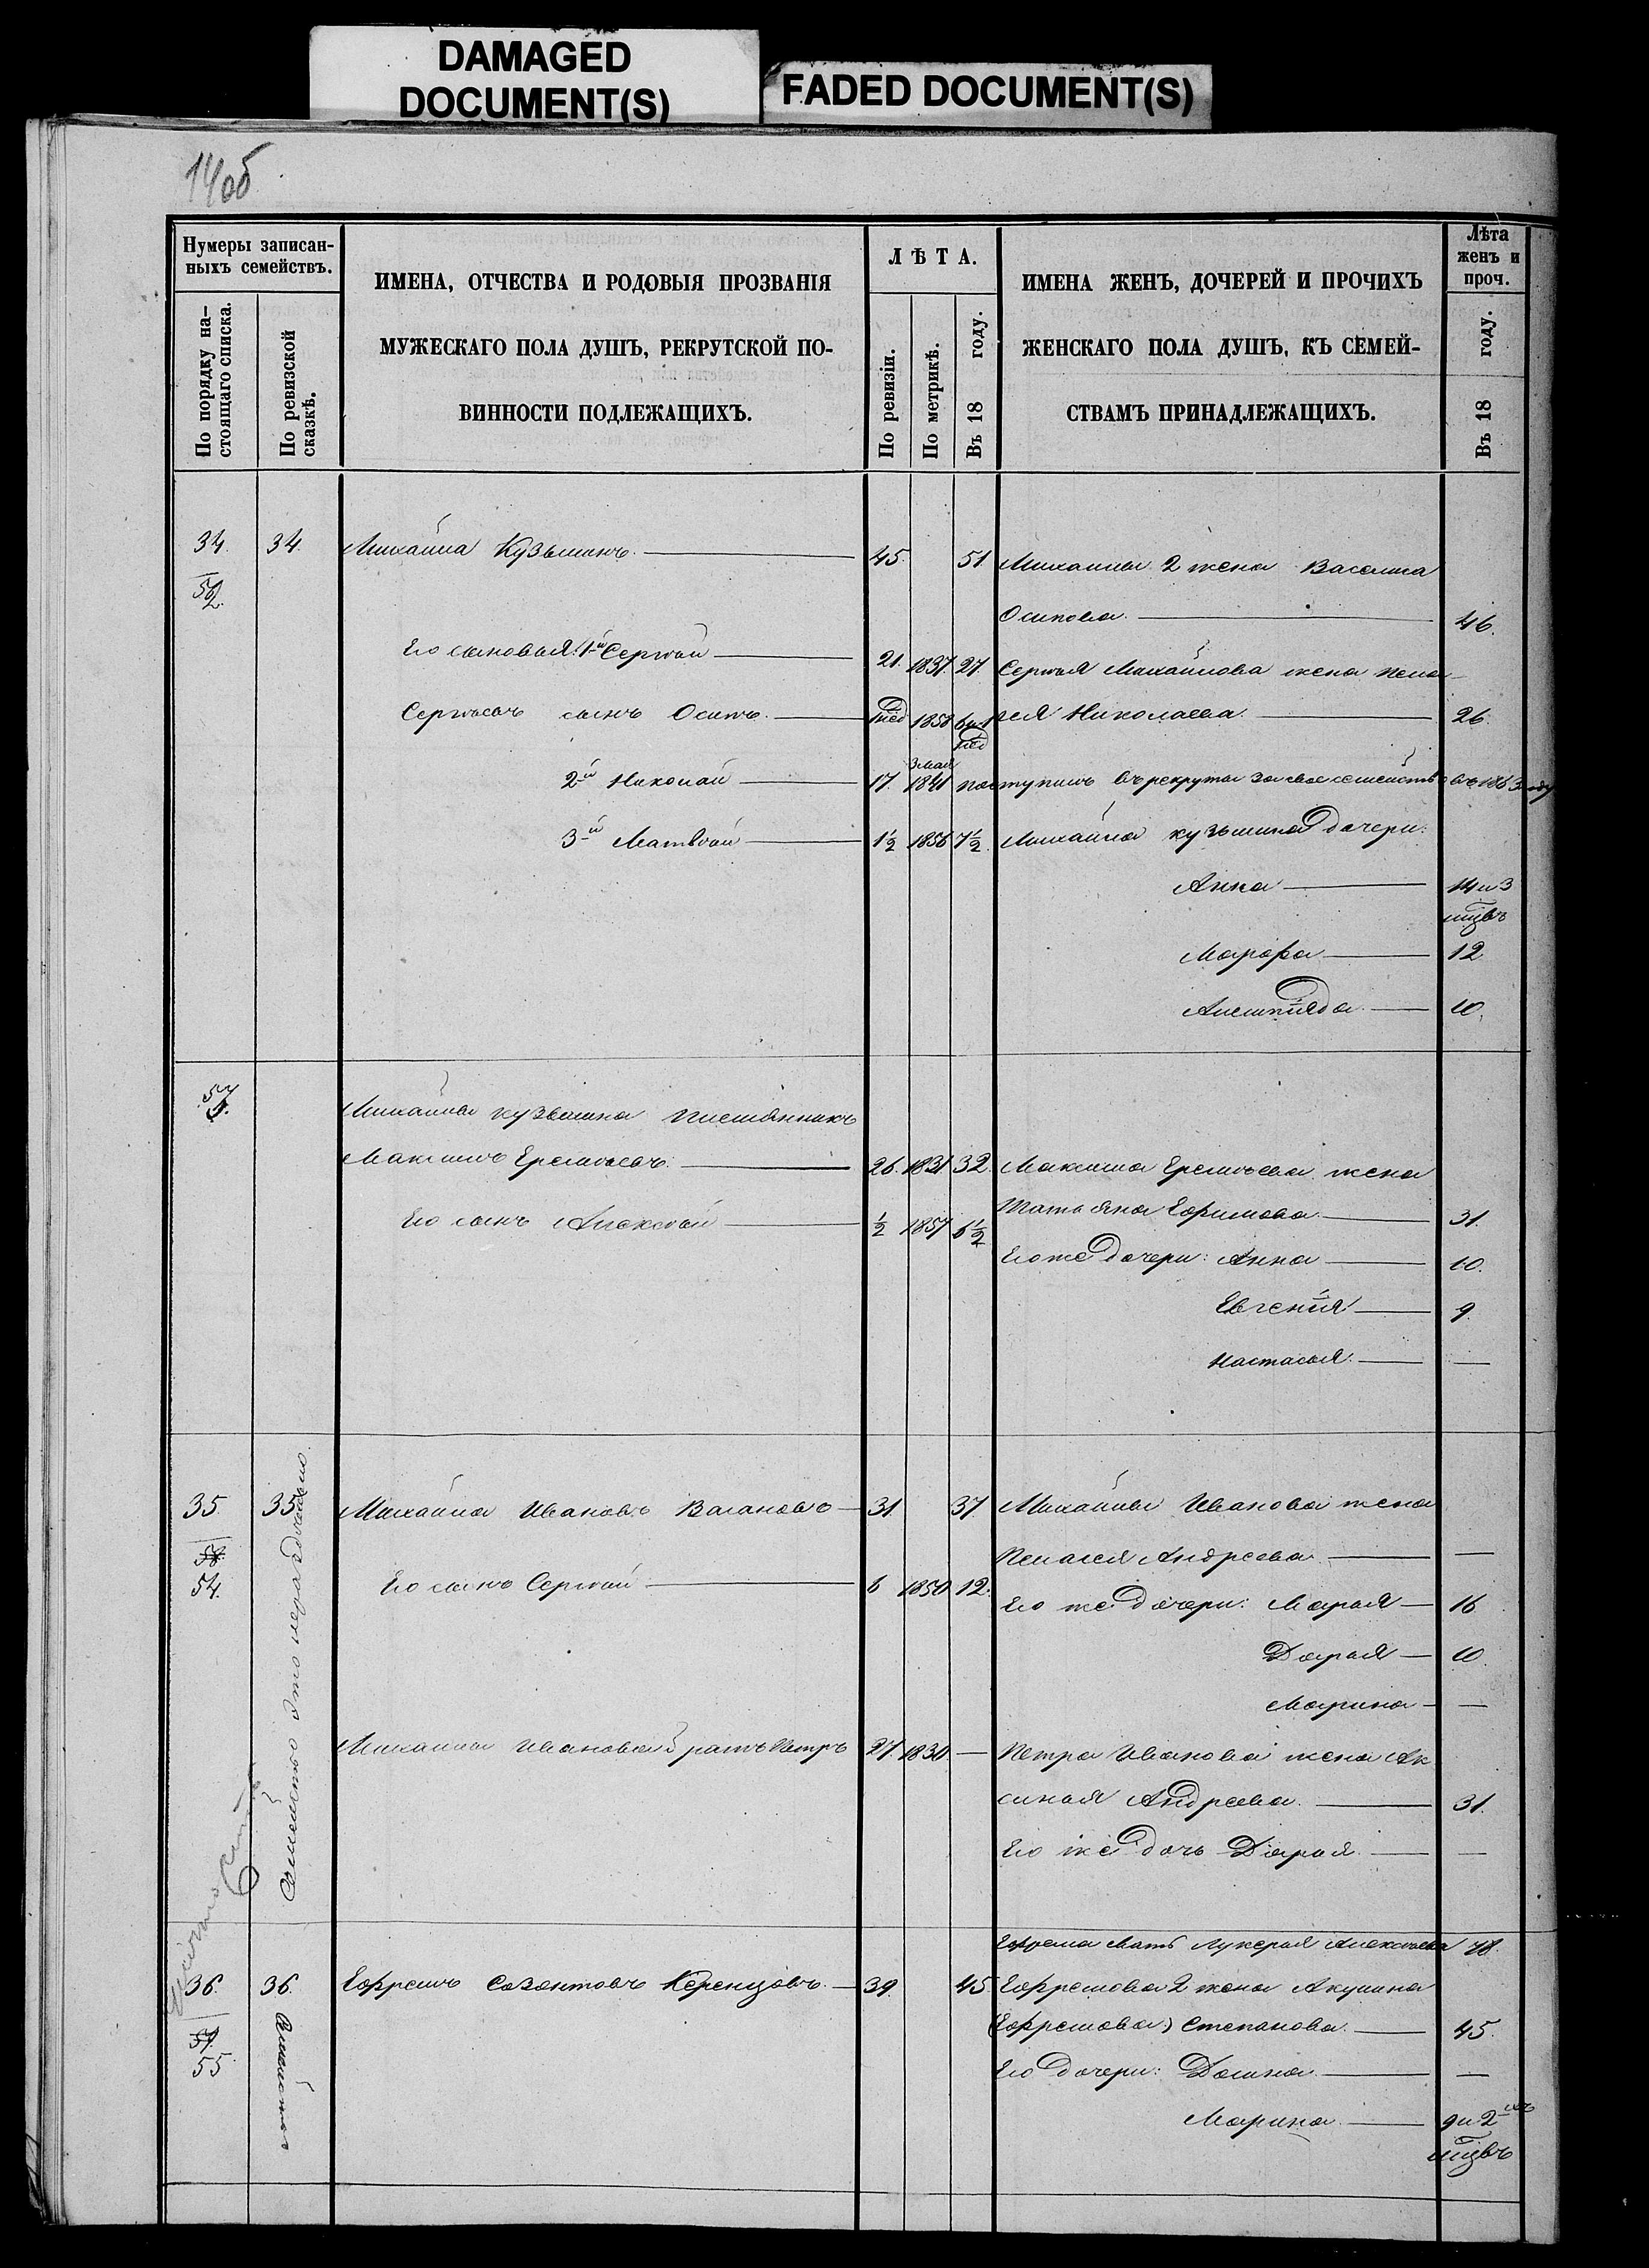 DAMAGED
DOCUMENT(S)
FADED DOCUMENT(S)
14об
Нумеры записан-
ныхъ семействъ.
По порядку на-
стоящаго списка.
По ревизской
сказкѣ.
ИМЕНА, ОТЧЕСТВА И РОДОВЫЯ ПРОЗВАНІЯ
МУЖЕСКАГО ПОЛА ДУШЪ, РЕКРУТСКОЙ ПО-
ВИННОСТИ ПОДЛЕЖАЩИХЪ.
ЛѢТА.
По ревизіи.
По метрикѣ.
Въ 18 году.
ИМЕНА ЖЕНЪ, ДОЧЕРЕЙ И ПРОЧИХЪ
ЖЕНСКАГО ПОЛА ДУШЪ, КЪ СЕМЕЙ-
СТВАМЪ ПРИНАДЛЕЖАЩИХЪ.
Лѣта
женъ и
проч.
Въ 18 году.
34. 34. Михайла Кузьминъ 45. 51 Михайлы 2 жена Василиса
Осипова 46.
Его сыновья: 1й Сергѣй 21. 1837. 27. Сергѣя Михайлова жена Пела-
Сергѣевъ сынъ Осипъ 1858 гея Николаева 26.
2й Николай 17. 1841 поступилъ въ рекруты за свое семейство въ 1863 году
3й Матвѣй 1½ 1856 7½ Михайла Кузьмина дочери:
Анна 14 и 3
мцвъ
Марфа 12
Алимпіяда 10.
Михайлы Кузьмина племянникъ
Максимъ Еремѣевъ 26. 1831 32. Максима Еремѣева жена
Татьяна Ефимова 31.
Его сынъ Алексѣй ½ 1857 6½
Его же дочери: Анна 10.
Евгенія 9.
Настасья —
35. 35 Михайла Ивановъ 31. 37 Михайлы Иванова жена
Пелагея Андреева —
54. Его сынъ Сергѣй 6 1850 12.
Его же дочери: Марья 16
Дарья 10.
Марина —
Михайлы Иванова братъ Петръ 27 1830 — Петра Иванова жена Ак
синья Андреева 31.
Его же дочь Дарья —
Семейство это
Ефрема мать Лукерья Алексѣева 78.
36. 36. Ефремъ Созонтовъ 39. 45 Ефремова 2 жена Акулина
(Ефремова) Степанова 45.
55. Его дочери: Домна —
Марина 9 и 2
мцвъ